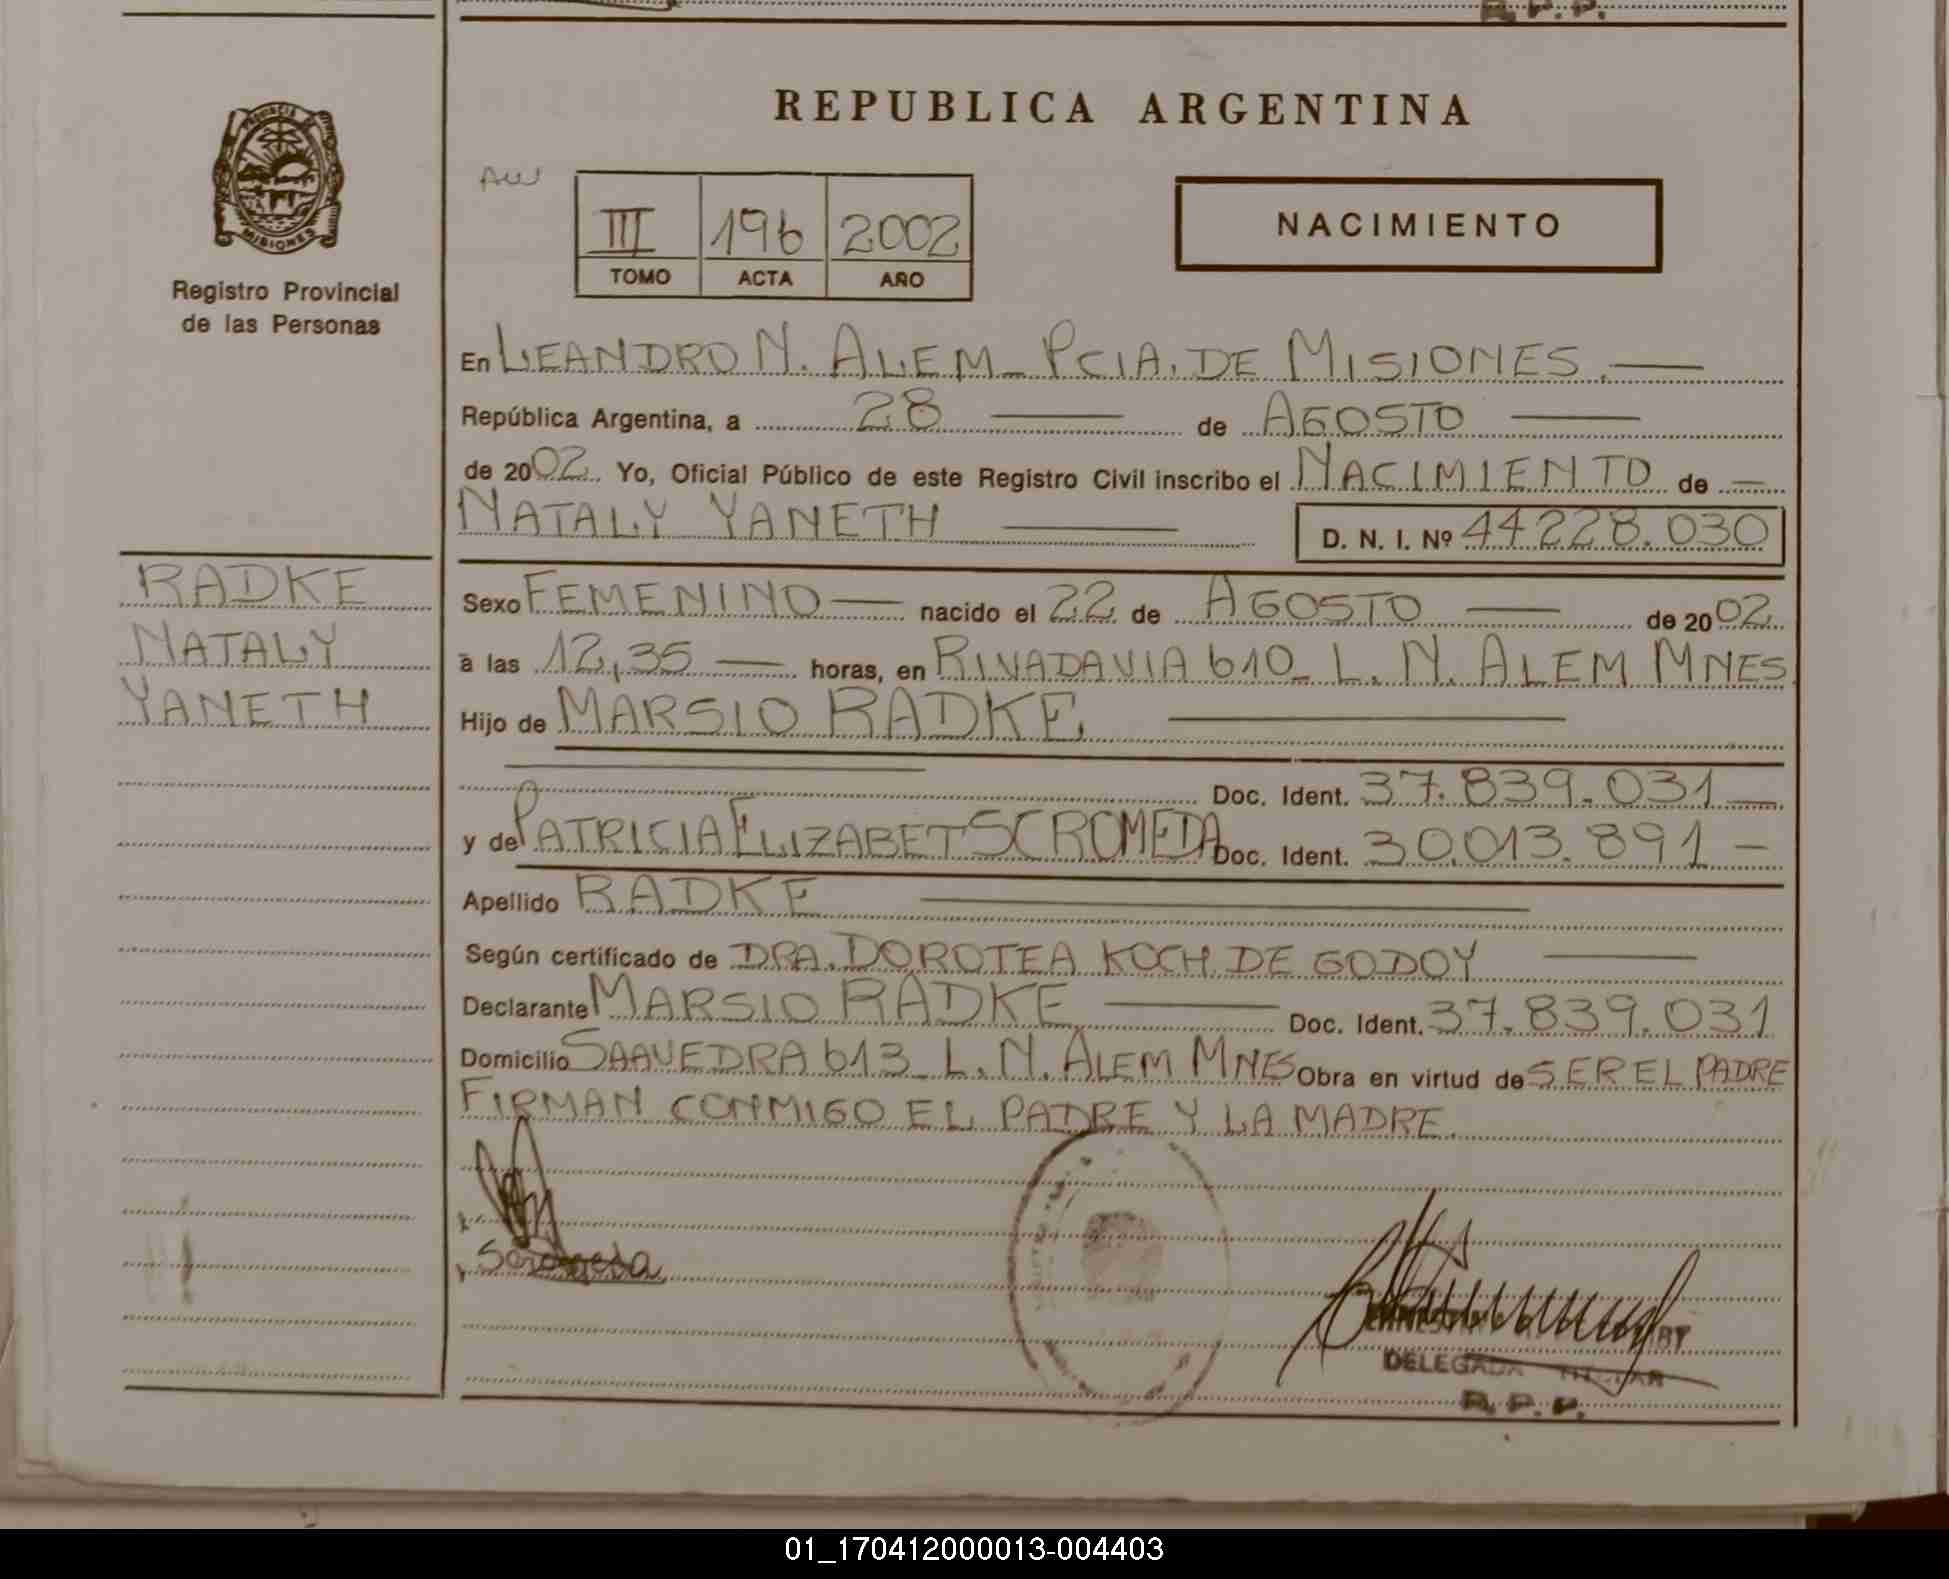 R. P. P.
PROVINCIA
MISIONES
Registro Provincial
de las Personas
REPUBLICA ARGENTINA
III 196 2002
TOMO ACTA AÑO
NACIMIENTO
En LEANDRO N. ALEM_ PCIA. DE MISIONES.
República Argentina, a 28 de AGOSTO
de 2002. Yo, Oficial Público de este Registro Civil inscribo el NACIMIENTO de
NATALY YANETH D. N. I. Nº 44228.030
RADKE
NATALY
YANETH
Sexo FEMENINO nacido el 22 de AGOSTO de 2002
a las 12,35 horas, en RIVADAVIA 610_ L. N. ALEM MNES
Hijo de MARSIO RADKE
Doc. Ident. 37.839.031
y de PATRICIA ELIZABET SCROMEDA Doc. Ident. 30.013.891
Apellido RADKE
Según certificado de DRA. DOROTEA KOCH DE GODOY
Declarante MARSIO RADKE Doc. Ident. 37.839.031
Domicilio SAAVEDRA 613_ L. N. ALEM MNES Obra en virtud de SER EL PADRE
FIRMAN CONMIGO EL PADRE Y LA MADRE.
DELEGADA TITULAR
R. P. P.
01_170412000013-004403